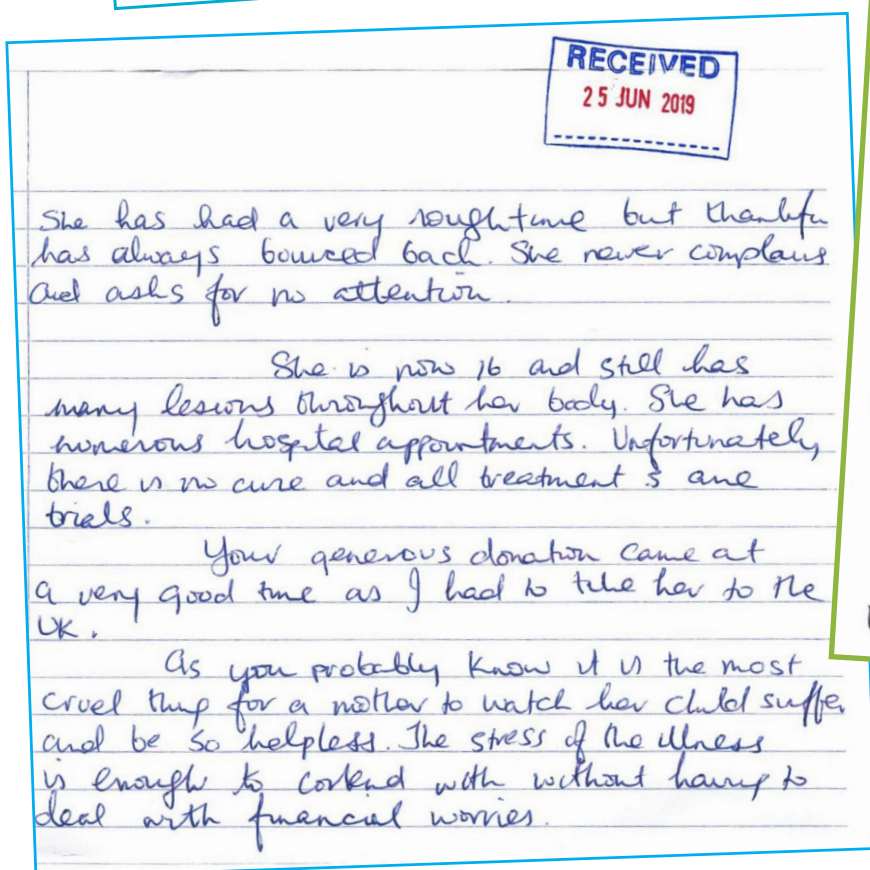 RECEIVED
25 JUN 2019
She has had a very rough time but thankfu
has always bounced back. She never complains
and asks for no attention.
She is now 16 and still has
many lesions throughout her body. She has
numerous hospital appointments. Unfortunately,
there is no cure and all treatment s are
trials.
Your generous donation came at
a very good time as I had to take her to the
UK.
As you probably know it is the most
cruel thing for a mother to watch her child suffer
and be so helpless. The stress of the illness
is enough to contend with without having to
deal with financial worries.